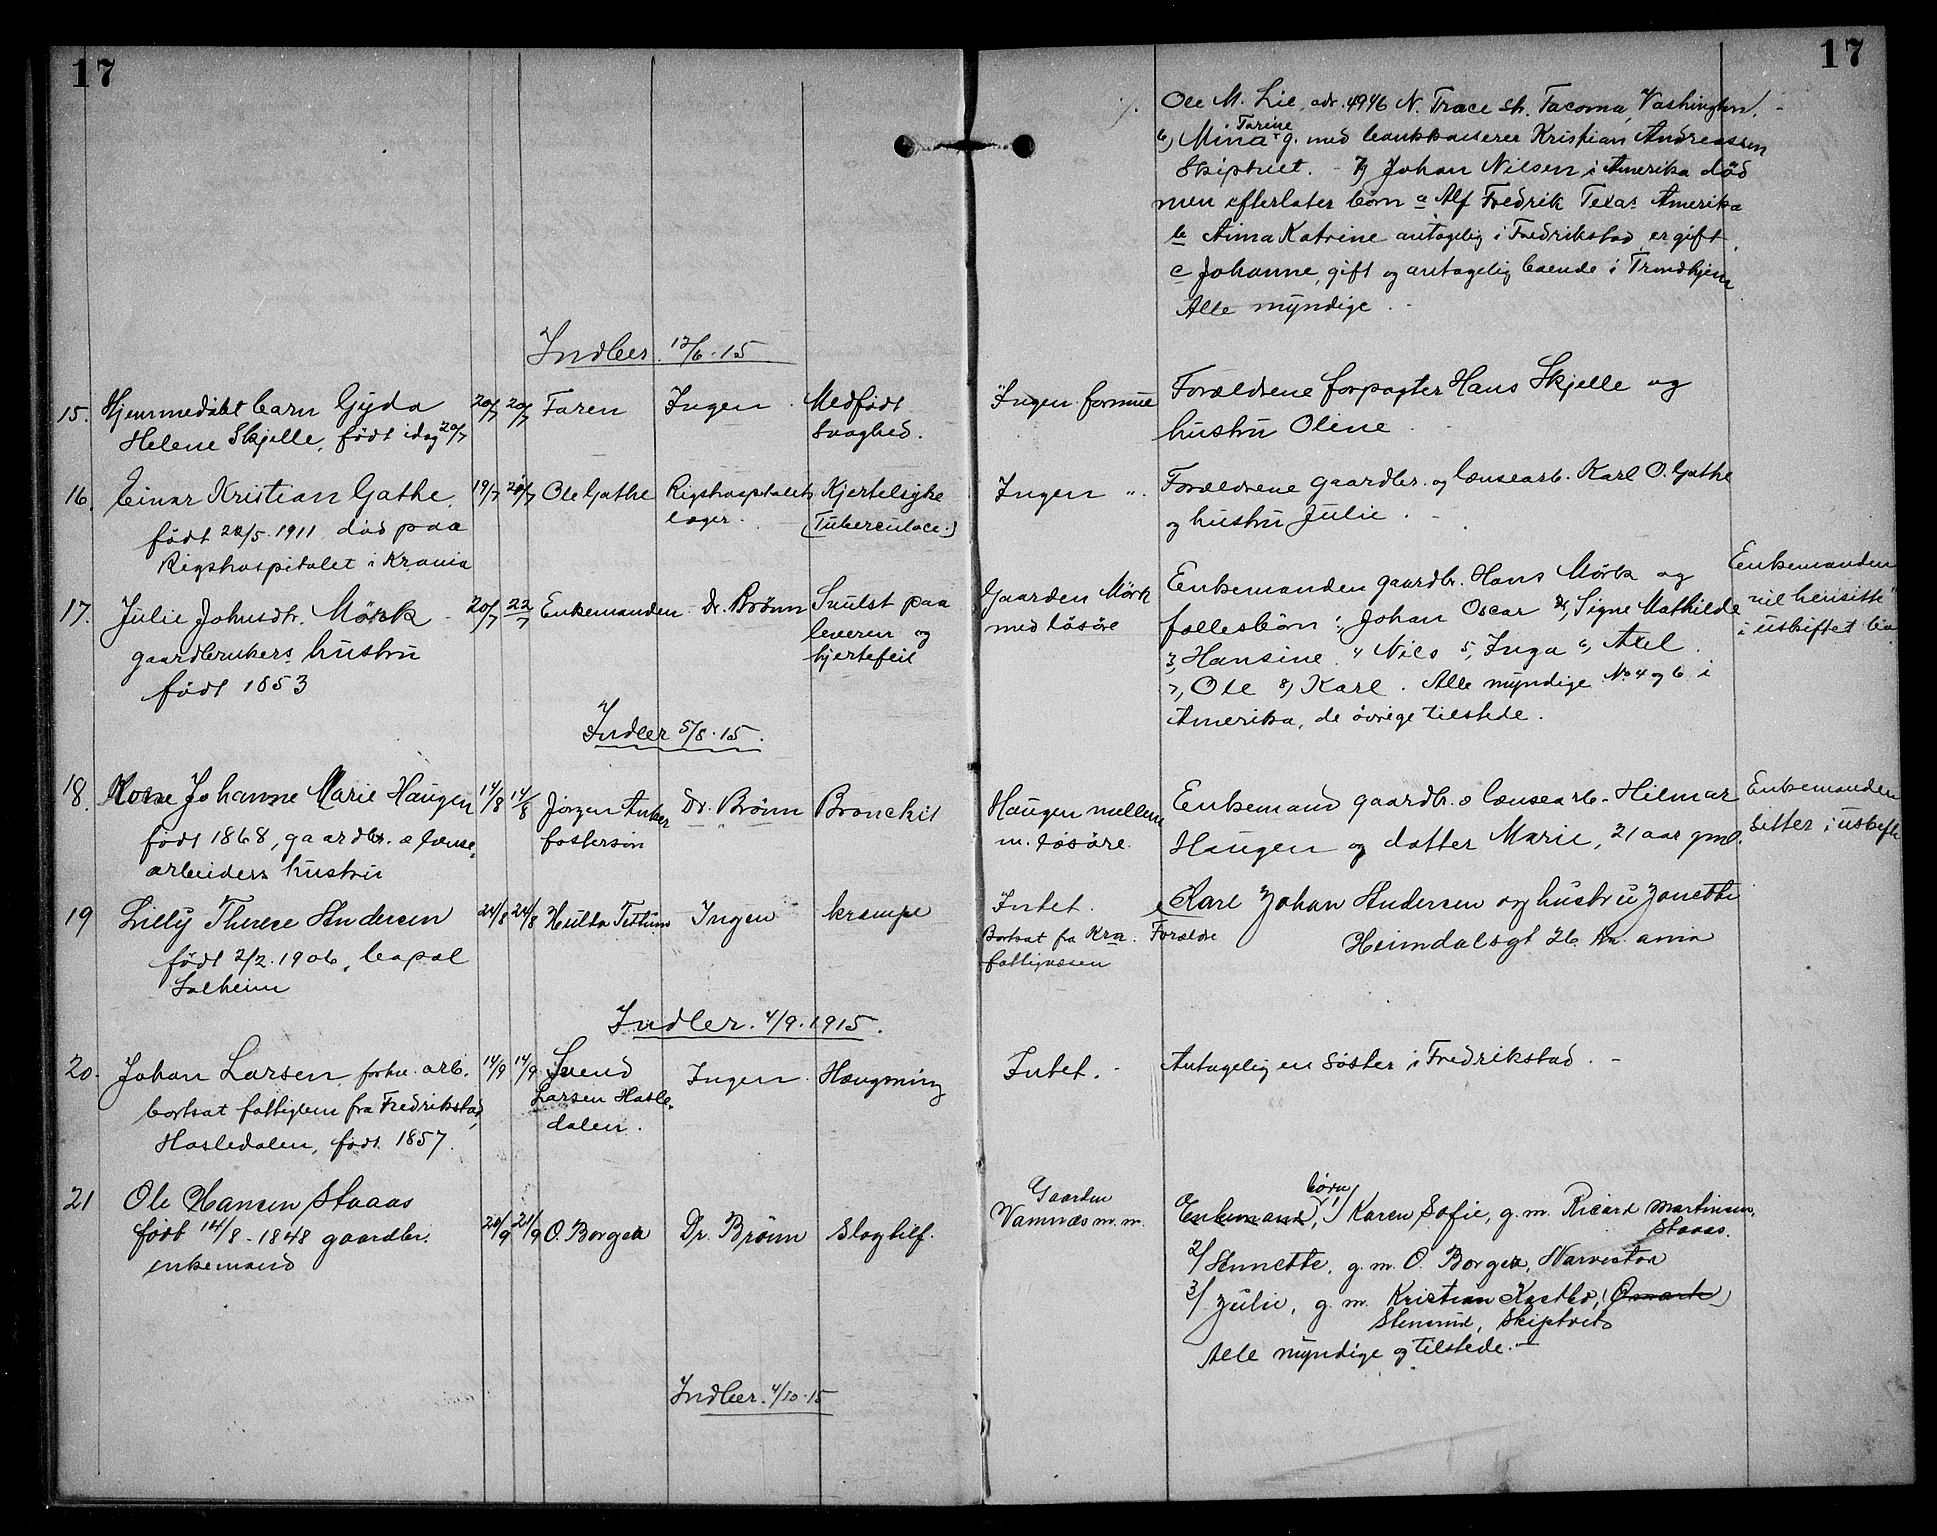 17
17
Ole M. Lie, adr. 4946 N. Trace str. Tacoma, Washington.
6, Mina Tarine g. med bankkasserer Kristian Andreassen
Skiptvet. - 7, Johan Nilsen i Amerika död
men efterlater börn a Alf Fredrik Texas Amerika
b Anna Katrine antagelig i Fredrikstad, er gift,
c Johanne, gift og antagelig boende i Trondhjem
Alle myndige.
Indber. 12/6-15
15. Hjemmedöbt barn Gyda
Helene Skjelle, födt idag 20/7
20/7 20/7 Faren Ingen Medfödt
Svaghed.
Ingen formue
Forældrene forpagter Hans Skjelle og
hustru Oline.
16. Einar Kristian Gathe
födt 20/5-1911, död paa
Rigshospitalet i Krania
19/7 20/7 Ole Gathe Rigshospitalets
læger.
Kjertelsyke
(Tuberculoce.)
Ingen ".
Forældrene gaardbr. og lænsearb. Karl O. Gathe
og hustru Julie.
17. Julie Johnsdtr. Mörk
gaardbrukers hustru
födt 1853
20/7 22/7 Enkemanden Dr. Brönn Svulst paa
leveren og
hjertefeil
Gaarden Mörk
med lösöre
Enkemanden gaardbr. Hans Mörk og
fællesbörn 1, Johan Oscar 2, Signe Mathilde
3, Hansine 4, Nils 5, Inga 6, Axel
7, Ole 8, Karl. Alle myndige No 4 og 6 i
Amerika, de övrige tilstede.
Enkemanden
vil hensitte
i uskiftet bo
Indber 5/8-15.
18. Johanne Marie Haugen
födt 1868, gaardbr. & lænse=
arbeiders hustru
14/8 14/8 Jörgen Anker
fostersön
Dr. Brönn Bronckit
Haugen mellem
m. lösöre.
Enkemand gaardbr. & lænsearb. Hilmar
Haugen og datter Marie, 21 aar gml.
Enkemanden
sitter i uskifte
19 Lilly Therese Andersen
födt 2/2. 1906, bopæl
Solheim
24/8 24/8 Hulda Tettum Ingen krampe
Intet.
Bortsat fra Kra.
fattigvæsen
Forældre
Karl Johan Andersen og hustru Jonette
Heimdalsgt 26. Kr.ania
Indber. 4/9. 1915.
20. Johan Larsen, forhv. arb.
bortsat fattiglem fra Fredrikstad,
Hasledalen, födt 1857.
14/9 14/9 Svend
Larsen Hasle=
dalen.
Ingen Hængning
Intet.
Antagelig en söster i Fredrikstad. -
21 Ole Hansen Staaas
födt 14/8-1848 gaardbr.
enkemand
20/9 21/9 O. Borgen Dr. Brönn Slagtilf.
Gaarden
Vamnæs m. m.
Enkemand, börn 1/ Karen Sofie, g. m. Ricard Martinsen,
Staaas.
2/ Annette, g. m. O. Borgen, Narvestad
3/ Julie, g. m. Kristian Kastbö, (Osmark)
Stensrud, Skiptvet
Alle myndige og tilstede. -
Indber. 4/10-15